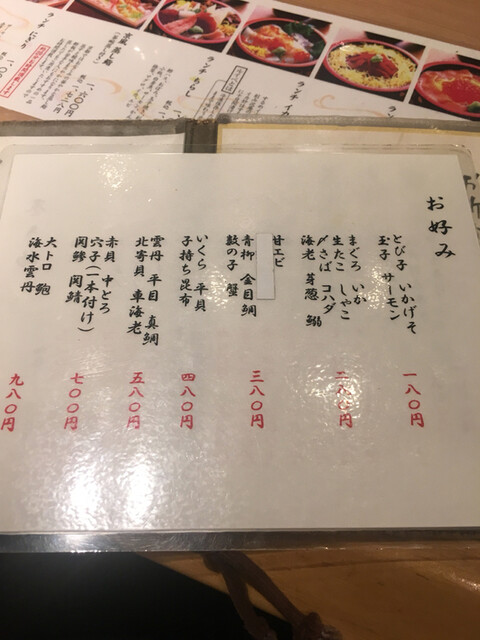 お好み
とび子 いかげそ
玉子 サーモン
一八〇円
まぐろ いか
生たこ しゃこ
〆さば コハダ
海老 芽葱 鰯
二八〇円
甘エビ
青柳 金目鯛
数の子 蟹
三八〇円
いくら 平貝
子持ち昆布
四八〇円
雲丹 平目 真鯛
北寄貝 車海老
五八〇円
赤貝 中とろ
穴子(一本付け)
関鯵 関鯖
七〇〇円
大トロ 鮑
海水雲丹
九八〇円
ランチ にぎり
ランチ ちらし
ランチ イカ